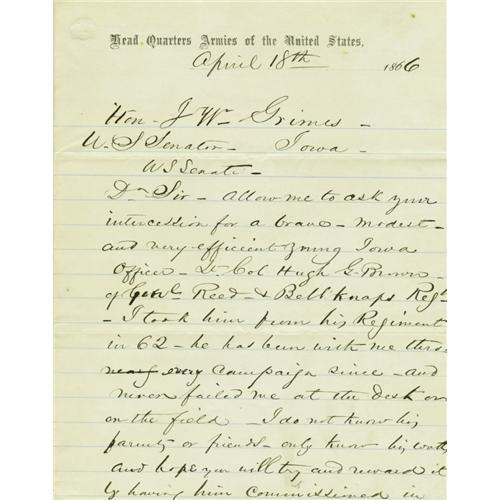 Head Quarters Armies of the United States,
April 18th 1866
Hon- J W Grimes -
U. S Senator - Iowa -
US Senate -
Dr Sir - Allow me to ask your
intercession for a brave - modest -
and very efficient young Iowa
Officer - Lt Col Hugh G. Brown -
of Genl Reed - & Bellknaps Regt
- I took him from his Regiment
in 62 - he has been with me thro
every campaign since - and
never failed me at the desk or
on the field - I do not know his
parents or friends - only know his worth
and hope you will try and reward it
by having him commissioned in